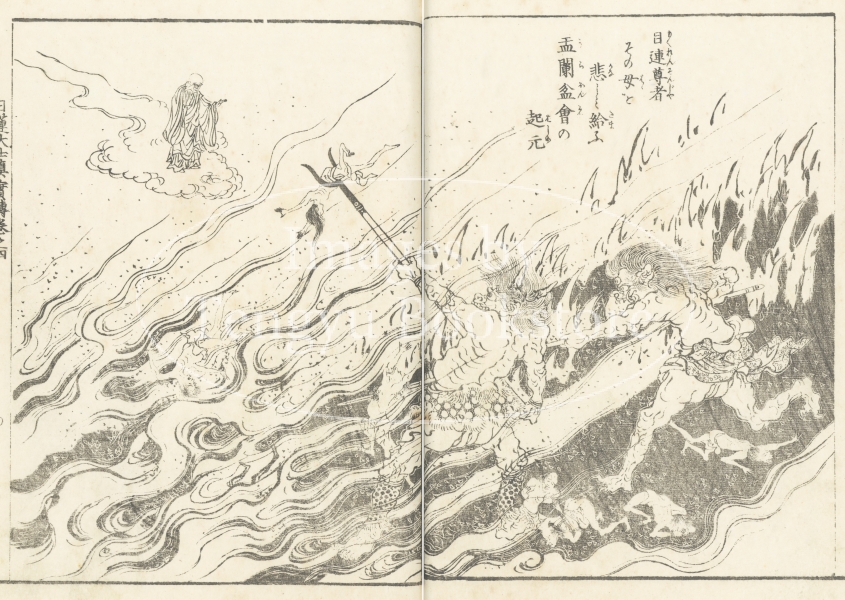 目連尊者
その母を
悲しミ給ふ
盂蘭盆會の
起元
日蓮大士真實傳巻之四
Images by
Tengyu Bookstore